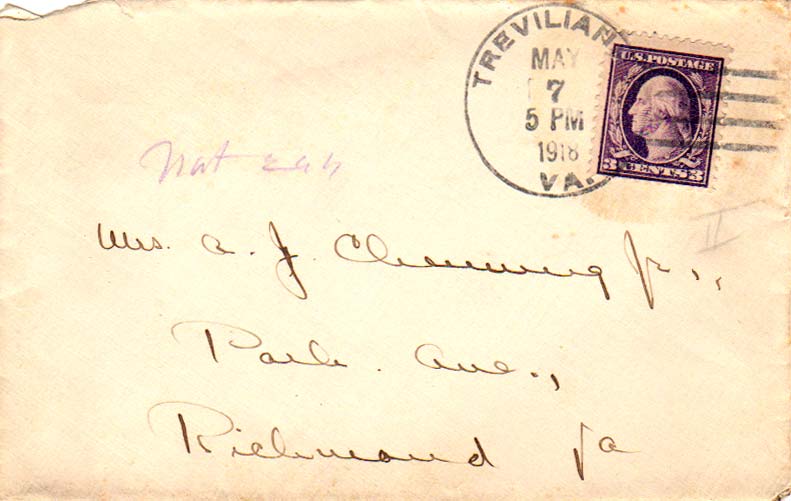 TREVILIANS
MAY
7
5 PM
1918
VA.
U.S. POSTAGE
3 CENTS 3
Mrs. A. J. Chewning Jr.,
Park. Ave.,
Richmond Va
II